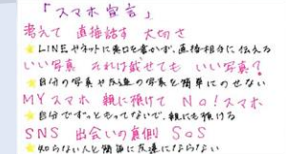 「スマホ宣言」
考えて 直接話す 大切さ
★LINEやネットに悪口を書かず、直接相手に伝える
いい写真 それは載せても いい写真?
★自分の写真や友達の写真を簡単にのせない
MYスマホ 親に預けて No!スマホ
★自分でずっともってないで、親にも預ける
SNS 出会いの裏側 SOS
★知らない人と簡単に友達にならない